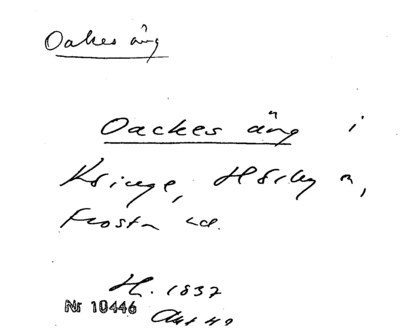 Oakes äng
Oackes äng i
Kringe, Hörby n,
Frosta hd.
H. 1837
Nr 10446
Akt 49